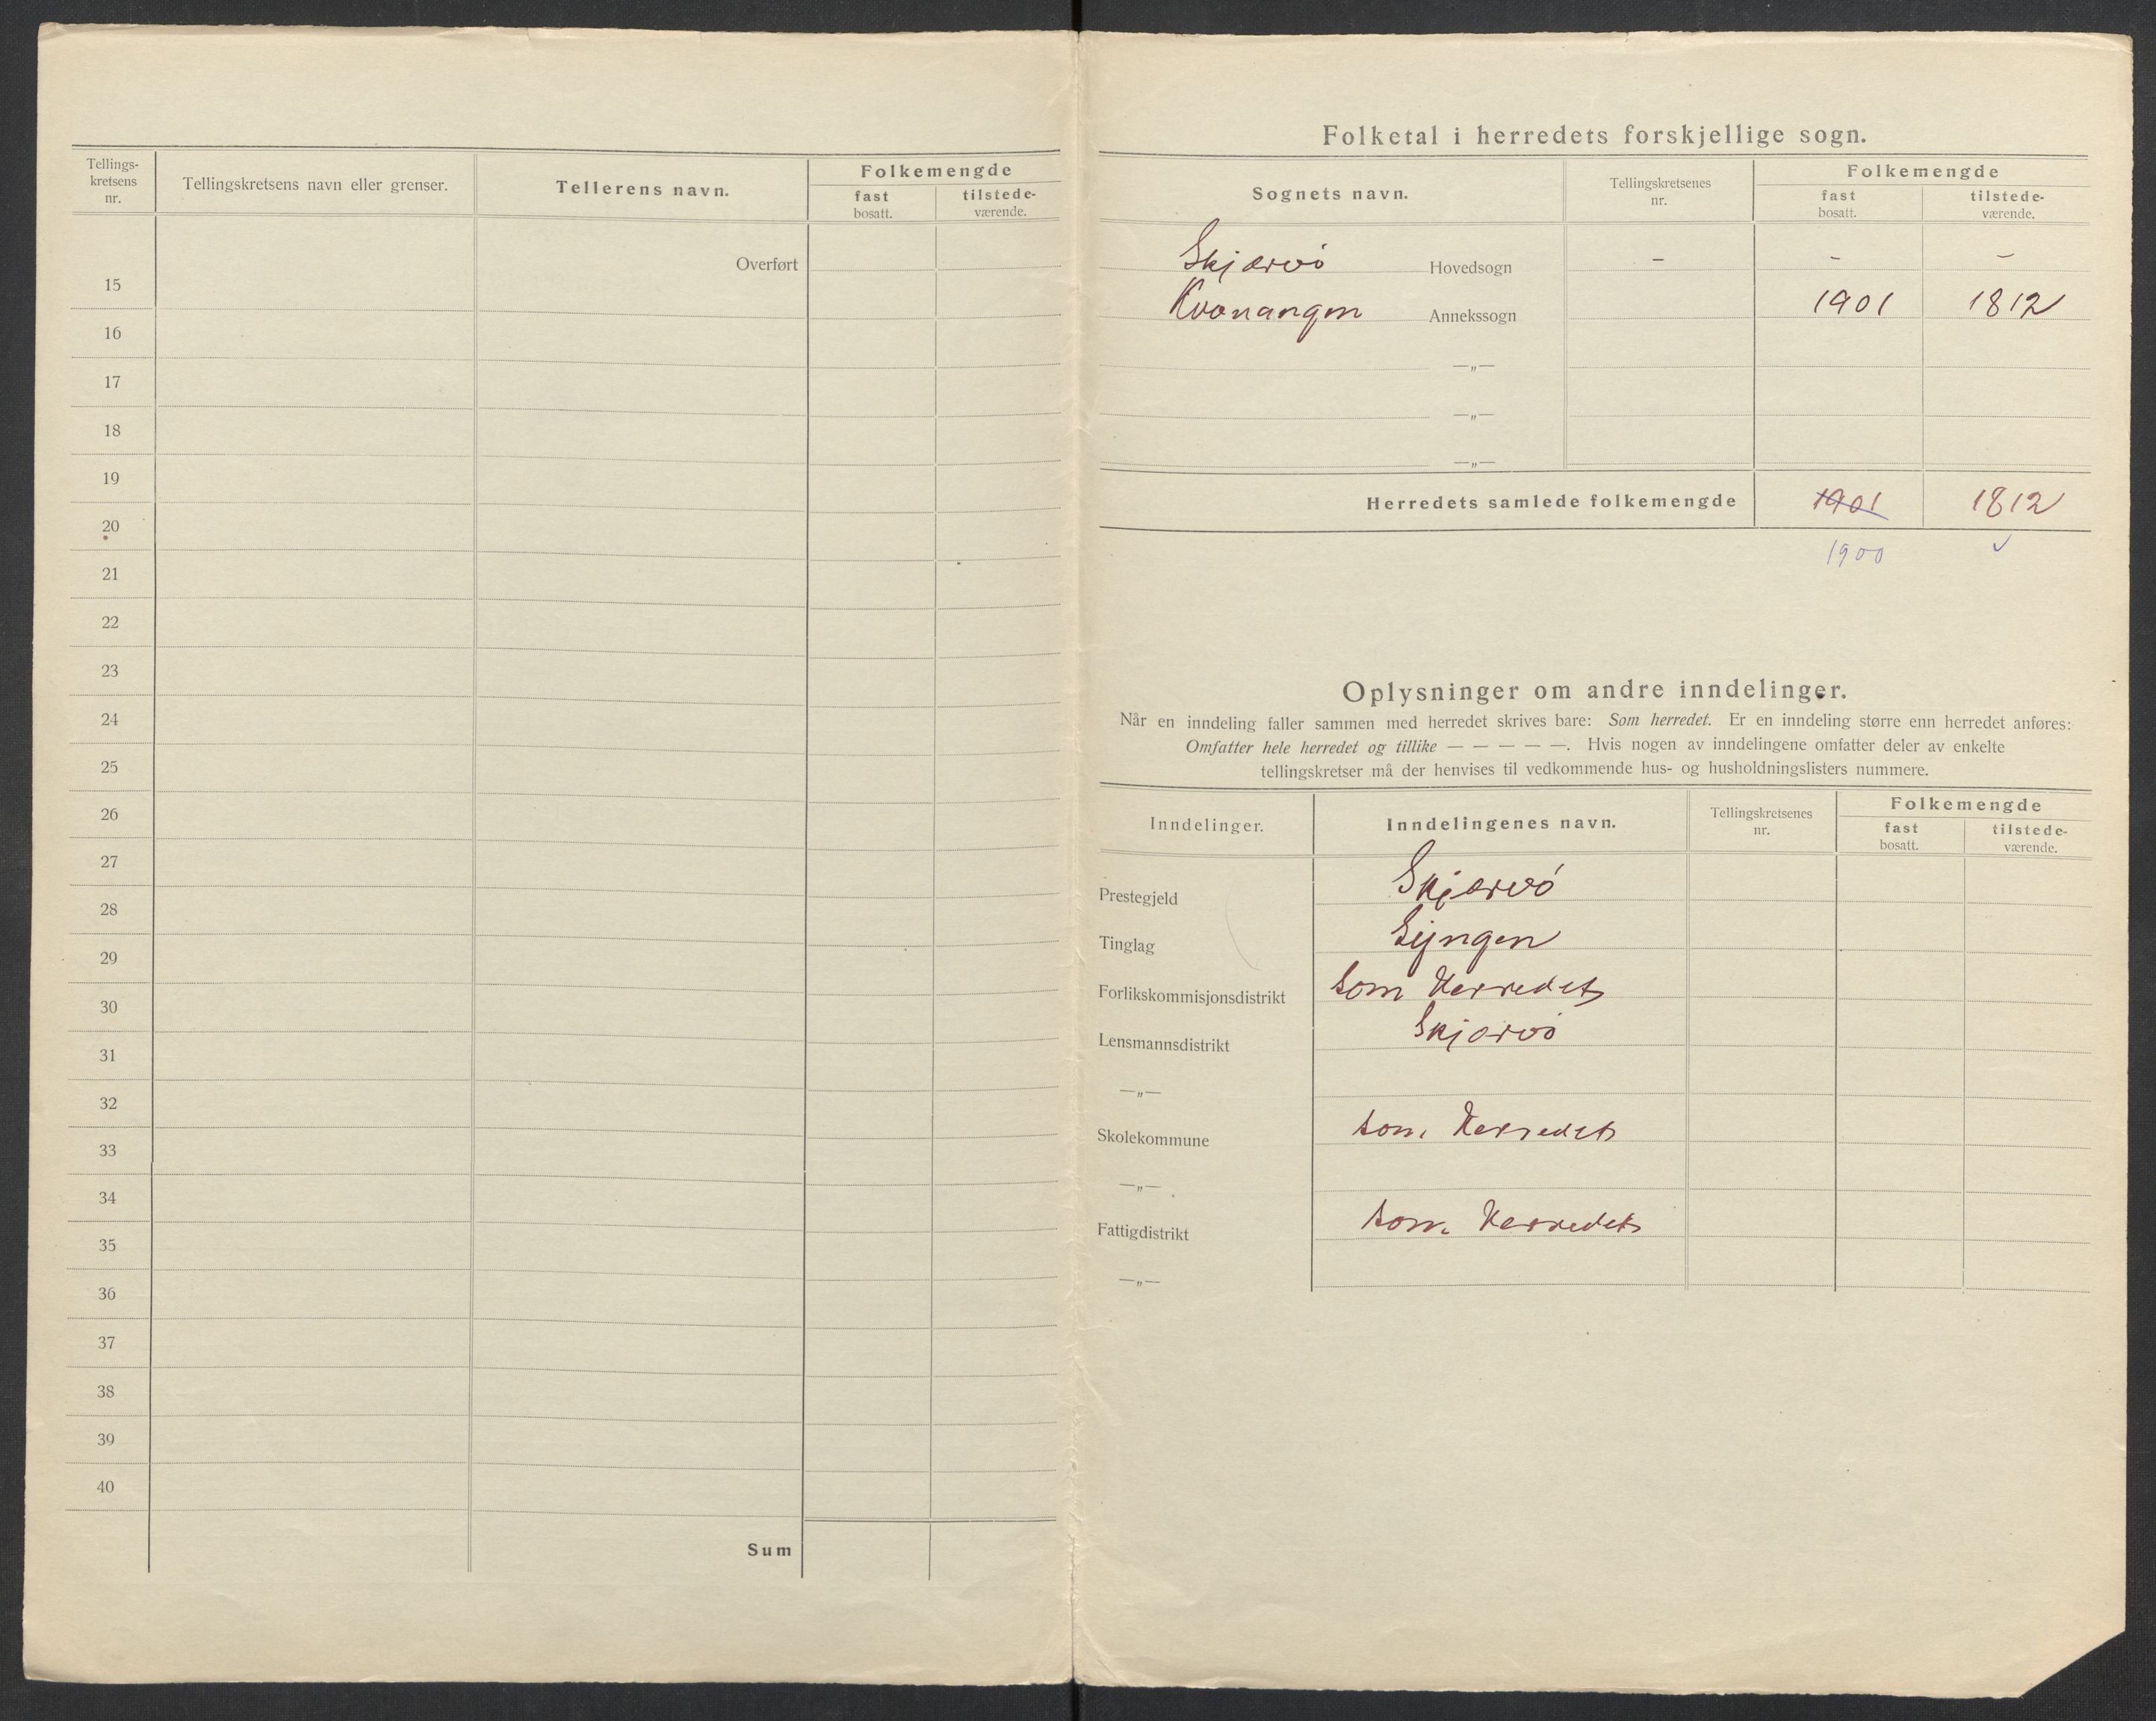 Tellings-
kretsens
nr.
Tellingskretsens navn eller grenser.
Tellerens navn.
Folkemengde
fast
bosatt.
tilstede-
værende.
Overført
15
16
17
18
19
20
21
22
23
24
25
26
27
28
29
30
31
32
33
34
35
36
37
38
39
40
Sum
Folketal i herredets forskjellige sogn.
Sognets navn.
Tellingskretsenes
nr.
Folkemengde
fast
bosatt.
tilstede-
værende.
Skjærvö Hovedsogn – – –
Kvænangen Annekssogn 1901 1812
—„—
—„—
—„—
Herredets samlede folkemengde 1901 1812
1900 ✓
Oplysninger om andre inndelinger.
Når en inndeling faller sammen med herredet skrives bare: Som herredet. Er en inndeling større enn herredet anføres:
Omfatter hele herredet og tillike — — — — —. Hvis nogen av inndelingene omfatter deler av enkelte
tellingskretser må der henvises til vedkommende hus- og husholdningslisters nummere.
Inndelinger.
Inndelingenes navn.
Tellingskretsenes
nr.
Folkemengde
fast
bosatt.
tilstede-
værende.
Prestegjeld Skjærvö
Tinglag Lyngen
Forlikskommisjonsdistrikt Som Herredets
Lensmannsdistrikt Skjærvö
—„—
Skolekommune Som Herredets
—„—
Fattigdistrikt Som Herredets
—„—